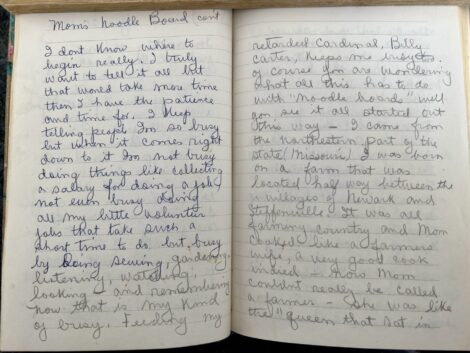 Mom's Noodle Board con't
I dont know where to
begin really. I truly
want to tell it all but
that would take more time
then I have the patience
and time for. I keep
telling people Im so busy
but when it comes right
down to it Im not busy
doing things like collecting
a salary for doing a job,
not even busy doing
all my little volunteer
jobs that take such a
short time to do. but, busy
by being sewing, gardening,
listening, watching,
looking - and remembering
now that is my kind
of busy. Feeding my
retarded Cardinal, Billy
Carter, keeps me busy to.
of course you are wondering
what all this has to do
with "Noodle boards" well
you see it all started out
this way - I came from
the northeastern part of the
state (Missouri) I was born
on a farm that was
located half way between the
villages of Newark and
Steffenville It was all
farming country and Mom
cooked like a farmers
wife, a very good cook
indeed - now Mom
couldnt really be called
a farmer - she was like
the "queen that sat in